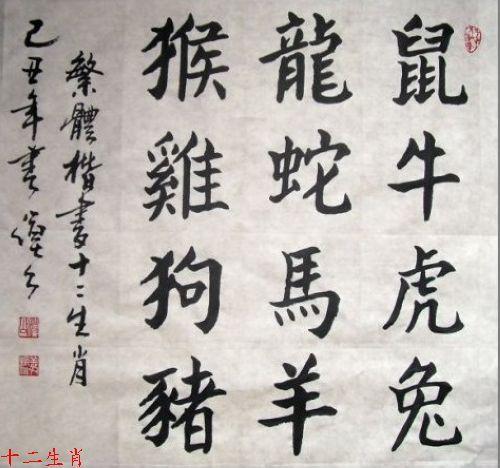 鼠牛虎兔
龍蛇馬羊
猴雞狗豬
繁體楷書十二生肖
己丑年書
十二生肖